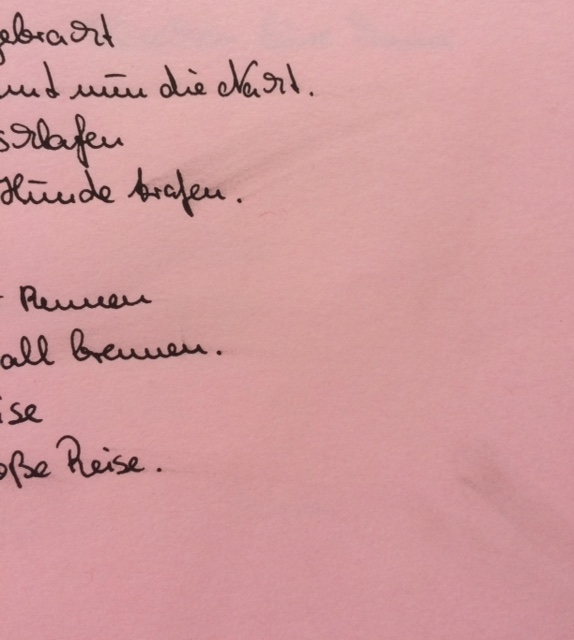 gebracht
und nun die Nacht.
schlafen
Hunde trafen.
Rennen
all brennen.
ise
oße Reise.